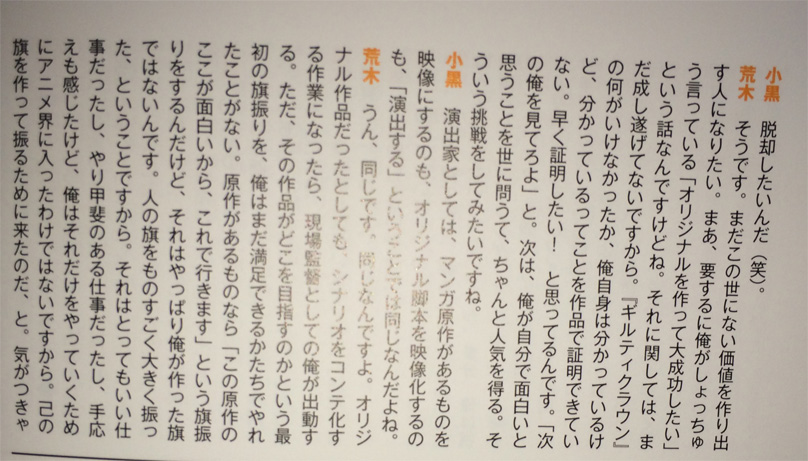 小黒　脱却したいんだ（笑）。
荒木　そうです。まだこの世にない価値を作り出
す人になりたい。まあ、要するに俺がしょっちゅ
う言っている「オリジナルを作って大成功したい」
という話なんですけどね。それに関しては、ま
だ成し遂げてないですから。『ギルティクラウン』
の何がいけなかったか、俺自身は分かっているけ
ど、分かっているってことを作品で証明できてい
ない。早く証明したい！　と思ってるんです。「次
の俺を見てろよ」と。次は、俺が自分で面白いと
思うことを世に問うて、ちゃんと人気を得る。そ
ういう挑戦をしてみたいですね。
小黒　演出家としては、マンガ原作があるものを
映像にするのも、オリジナル脚本を映像化するの
も、「演出する」ということでは同じなんだよね。
荒木　うん、同じです。同じなんですよ。オリジ
ナル作品だったとしても、シナリオをコンテ化す
る作業になったら、現場監督としての俺が出動す
る。ただ、その作品がどこを目指すのかという最
初の旗振りを、俺はまだ満足できるかたちでやれ
たことがない。原作があるものなら「この原作の
ここが面白いから、これで行きます」という旗振
りをするんだけど、それはやっぱり俺が作った旗
ではないんです。人の旗をものすごく大きく振っ
た、ということですから。それはとってもいい仕
事だったし、やり甲斐のある仕事だったし、手応
えも感じたけど、俺はそれだけをやっていくため
にアニメ界に入ったわけではないですから。己の
旗を作って振るために来たのだ、と。気がつきゃ